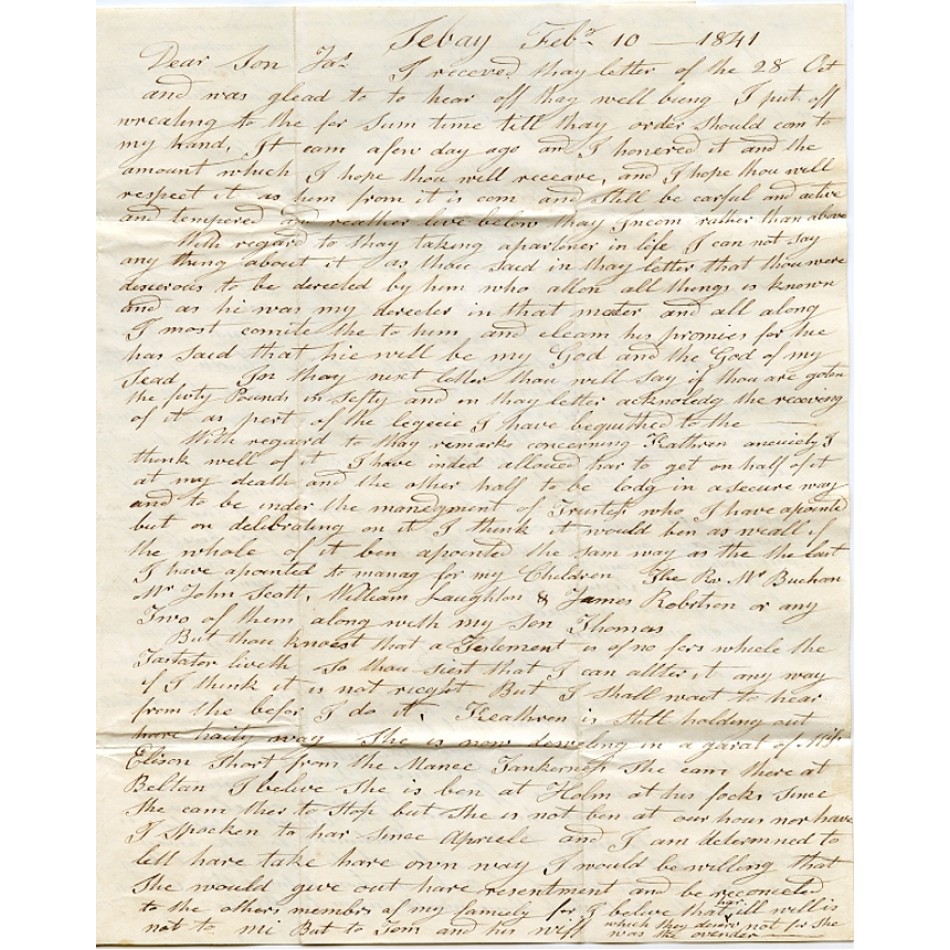 Sebay Febr 10 — 1841
Dear Son Jas I receved thay letter of the 28 Oct
and was glead to to hear off thay well being I put off
wreating to the for sum time till thay order should com to
my hand, It cam a few day ago and I honered it and the
amount which I hope thou will receave, and I hope thou will
respect it as hum from it is com and still be carful and active
and tempered and reather live below thay Incom rather than above
With regard to thay taking a partener in life I can not say
any thing about it as thou said in thay letter that thou were
desierous to be derected by him who allon all things is known
and as he was my derecter in that mater and all along
I most comite the to him and cleam his promies for hue
has said that hie will be my God and the God of my
Sead In thay next letter thou will say if thou are goten
the forty Pounds in sefty and in thay letter acknoledg the receving
of it as pert of the legecie I have bequithed to the —
With regard to thay remarks concerning Kathren anewiety I
think well of it I have inded allowed har to get on half of it
at my death and the other half to be lodg in a secure way
and to be under the manegment of Trustess who I have apointed
but on delebrating on it I think it would ben as weall if
the whole of it ben apointed the sam way as the the last
I have apointed to manag for my Children The Rev Mr Buchan
Mr John Scott, William Laughton & James Robrtson or any
Two of them along with my Son Thomas
But thou knoest that a Testement is of no fors whiele the
Tastator liveth so thou siest that I can allter it any way
if I think it is not rieght But I shall wait to hear
from the befor I do it, Keathren is still holding out
hare haity way She is now dewleing in a garat of Mrs
Elison Short from the Manee Tankerness She cam there at
Beltan I belive she is ben at Holm at his focks since
She cam ther to stop but She is not ben at our hous nor have
I spocken to har since Apriele and I am determned to
lett hare take hare own way I would be willeng that
She would give out hare resentment and be reconceled
to the others membrs of my famiely for I belive that har ill will is
not to me But to Tom and his wiff which they desirv not for she
was the ovender —